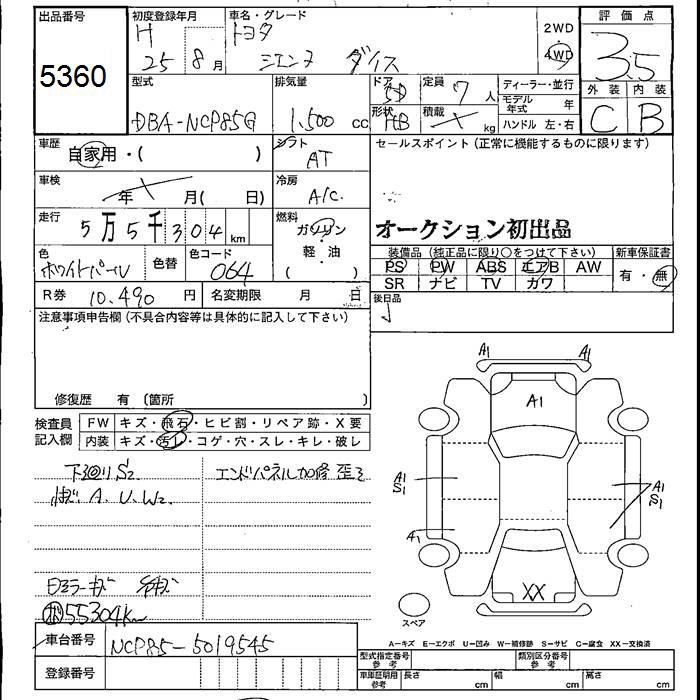 出品番号
5360
初度登録年月
H
25 8 月
車名・グレード
トヨタ
シエンタ ダイス
2WD
4WD
評価点
3.5
外装 内装
C B
型式
DBA-NCP85G
排気量
1,500 cc
ドア
5D
形状
HB
定員
7 人
積載
kg
ディーラー・並行
モデル年式 年
ハンドル 左・右
車歴
自家用・( )
シフト
AT
セールスポイント(正常に機能するものに限ります)
車検
年 月( 日)
冷房
A/C
オークション初出品
走行
5万5千304km
燃料
ガソリン
・
軽・油
( )
色
ホワイトパール
色替
色コード
064
装備品(純正品に限り○をつけて下さい)
新車保証書
PS PW ABS エアB AW
SR ナビ TV カワ
有・無
R券 10,490 円
名変期限 月 日
後日品
注意事項申告欄(不具合内容等は具体的に記入して下さい)
修復歴 有 〔箇所 〕
検査員
記入欄
FW キズ・飛石・ヒビ割・リペア跡・X要
内装 キズ・汚レ・コゲ・穴・スレ・キレ・破レ
下廻りS2
エンドパネル加修 歪ミ
A.U.W2.
ミラーキズ
55304km
車台番号
NCP85-5019545
登録番号
A1 A1
A1
A1
S1
A1
S1
A1
XX
スペア
A−キズ E−エクボ U−凹み W−補修跡 S−サビ C−腐食 XX−交換済
型式指定番号
参考
類別区分番号
参考
車庫証明用
参考
長さ cm
幅 cm
高さ cm